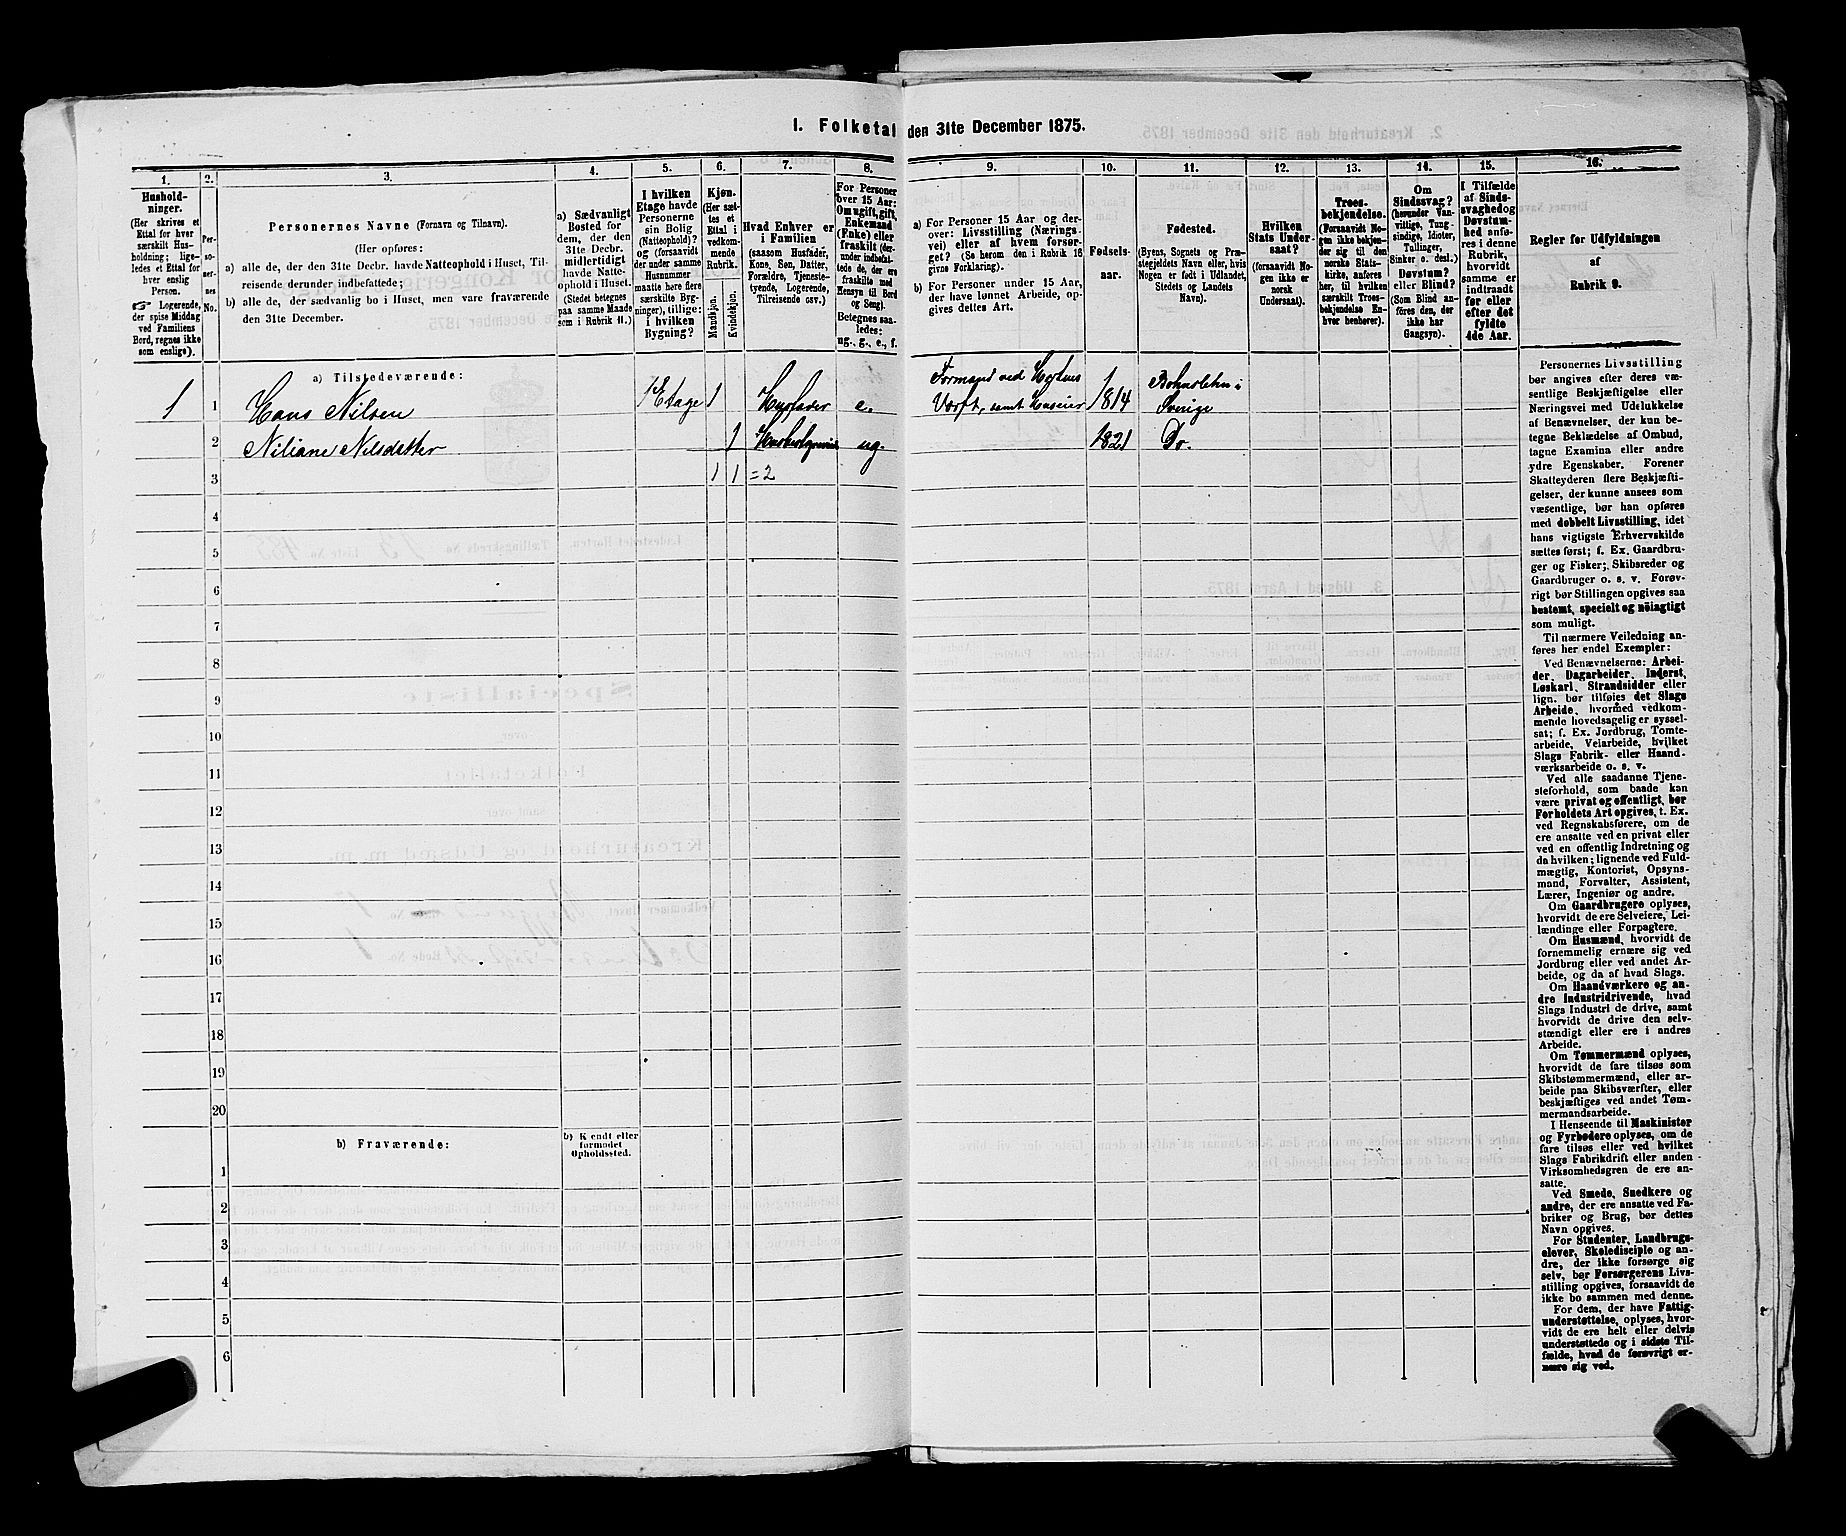 1. Folketal den 31te December 1875.
1. 2. 3. 4. 5. 6. 7. 8. 9. 10. 11. 12. 13. 14. 15. 16.
Hushold-
ninger.
(Her skrives et
Ettal for hver
særskilt Hus-
holdning; lige-
ledes et Ettal for
hver enslig
Person.
☞ Logerende,
der spise Middag
ved Familiens
Bord, regnes ikke
som enslige).
Per-
so-
ner-
nes
No.
Personernes Navne (Fornavn og Tilnavn).
(Her opføres:
a) alle de, der den 31te Decbr. havde Natteophold i Huset, Til-
reisende derunder indbefattede;
b) alle de, der sædvanlig bo i Huset, men vare fraværende
den 31te December.
a) Sædvanligt
Bosted for
dem, der den
31te Decbr.
midlertidigt
havde Natte-
ophold i Huset.
(Stedet betegnes
paa samme Maade
som i Rubrik 11.)
I hvilken
Etage havde
Personerne
sin Bolig
(Natteophold)?
og (forsaavidt
der under samme
Husnummer
maatte høre flere
særskilte Byg-
ninger), tillige:
i hvilken
Bygning?
Kjøn.
(Her sæt-
tes et
Ettal i
vedkom-
mende
Rubrik.
Mandkjøn.
Kvindekjøn.
Hvad Enhver er
i Familien
(saasom Husfader,
Kone, Søn, Datter,
Forældre, Tjeneste-
tyende, Logerende,
Tilreisende osv.)
For Personer
over 15 Aar:
Om ugift, gift,
Enkemand
(Enke) eller
fraskilt (der-
under indbefat-
tede de, der ere
fraskilte med
Hensyn til Bord
og Seng).
Betegnes saa-
ledes:
ug., g., e., f.
a) For Personer 15 Aar og der-
over: Livsstilling (Nærings-
vei) eller af hvem forsør-
get? (Se herom den i Rubrik 16
givne Forklaring).
b) For Personer under 15 Aar,
der have lønnet Arbeide, op-
gives dettes Art.
Fødsels-
aar.
Fødested.
(Byens, Sognets og Præ-
stegjeldets Navn eller, hvis
Nogen er født i Udlandet,
Stedets og Landets
Navn).
Hvilken
Stats Under-
saat?
(forsaavidt No-
gen ikke er
norsk
Undersaat).
Troes-
bekjendelse.
(Forsaavidt No-
gen ikke bekjen-
der sig til den
norske Stats-
kirke, anføres
her, til hvilken
særskilt Troes-
bekjendelse En-
hver henhører).
Om
Sindssvag?
(herunder Van-
vittige, Tung-
sindige, Idioter,
Tullinger,
Sinker o. desl.)
Døvstum?
eller Blind?
(Som Blind an-
føres den, der
ikke har
Gangsyn).
I Tilfælde
af Sinds-
svaghed og
Døvstum-
hed anfø-
res i denne
Rubrik,
hvorvidt
samme er
indtraadt
før eller
efter det
fyldte
4de Aar.
Regler for Udfyldningen
af
Rubrik 9.
a) Tilstedeværende:
1 1 Hans Nilsen 1 Etage 1 Husfader e. Formand ved Hortens Værft, samt Huseier 1814 Bohuslehn i Sverige
2 Niliane Nilsdatter 1 ug. 1821 Do.
3 1 1 = 2
4
5
6
7
8
9
10
11
12
13
14
15
16
17
18
19
20
b) Fraværende:
b) Kjendt eller
formodet
Opholdssted.
1
2
3
4
5
6
Personernes Livsstilling
bør angives efter deres væ-
sentlige Beskjæftigelse eller
Næringsvei med Udelukkelse
af Benævnelser, der kun be-
tegne Beklædelse af Ombud,
tagne Examina eller andre
ydre Egenskaber. Forener
Skatteyderen flere Beskjæfti-
gelser, der kunne ansees som
væsentlige, bør han opføres
med dobbelt Livsstilling, idet
hans vigtigste Erhvervskilde
sættes først; f. Ex. Gaardbru-
ger og Fisker; Skibsreder og
Gaardbruger o. s. v. Forøv-
rigt bør Stillingen opgives saa
bestemt, specielt og nøiagtigt
som muligt.
Til nærmere Veiledning an-
føres her endel Exempler:
Ved Benævnelserne: Arbei-
der, Dagarbeider, Inderst,
Løskarl, Strandsidder eller
lign. bør tilføies det Slags
Arbeide, hvormed vedkom-
mende hovedsagelig er syssel-
sat; f. Ex. Jordbrug, Tomte-
arbeide, Veiarbeide, hvilket
Slags Fabrik- eller Haand-
værksarbeide o. s. v.
Ved alle saadanne Tjene-
steforhold, som baade kan
være privat og offentligt, bør
Forholdets Art opgives, t. Ex.
ved Regnskabsførere, om de
ere ansatte ved en privat eller
ved en offentlig Indretning og
da hvilken; lignende ved Fuld-
mægtig, Kontorist, Opsyns-
mand, Forvalter, Assistent,
Lærer, Ingeniør og andre.
Om Gaardbrugere oplyses,
hvorvidt de ere Selveiere, Lei-
lændinge eller Forpagtere.
Om Husmænd, hvorvidt de
fornemmelig ernære sig ved
Jordbrug eller ved andet Ar-
beide, og da af hvad Slags.
Om Haandværkere og an-
dre Industridrivende, hvad
Slags Industri de drive, samt
hvorvidt de drive den selv-
stændigt eller ere i andres
Arbeide.
Om Tømmermænd oplyses,
hvorvidt de fare tilsøs som
Skibstømmermænd, eller ar-
beide paa Skibsværfter, eller
beskjæftiges ved andet Tøm-
mermandsarbeide.
I Henseende til Maskinister
og Fyrbødere oplyses, om de
fare tilsøs eller ved hvilket
Slags Fabrikdrift eller anden
Virksomhedsgren de ere an-
satte.
Ved Smede, Snedkere og
andre, der ere ansatte ved Fa-
briker og Brug, bør dettes
Navn opgives.
For Studenter, Landbrugs-
elever, Skoledisciple og an-
dre, der ikke forsørge sig
selv, bør Forsørgerens Livs-
stilling opgives, forsaavidt de
ikke bo sammen med denne.
For dem, der have Fattig-
understøttelse, oplyses, hvor-
vidt de ere helt eller delvis
understøttede og i sidste Til-
fælde, hvad de forøvrigt er-
nære sig ved.